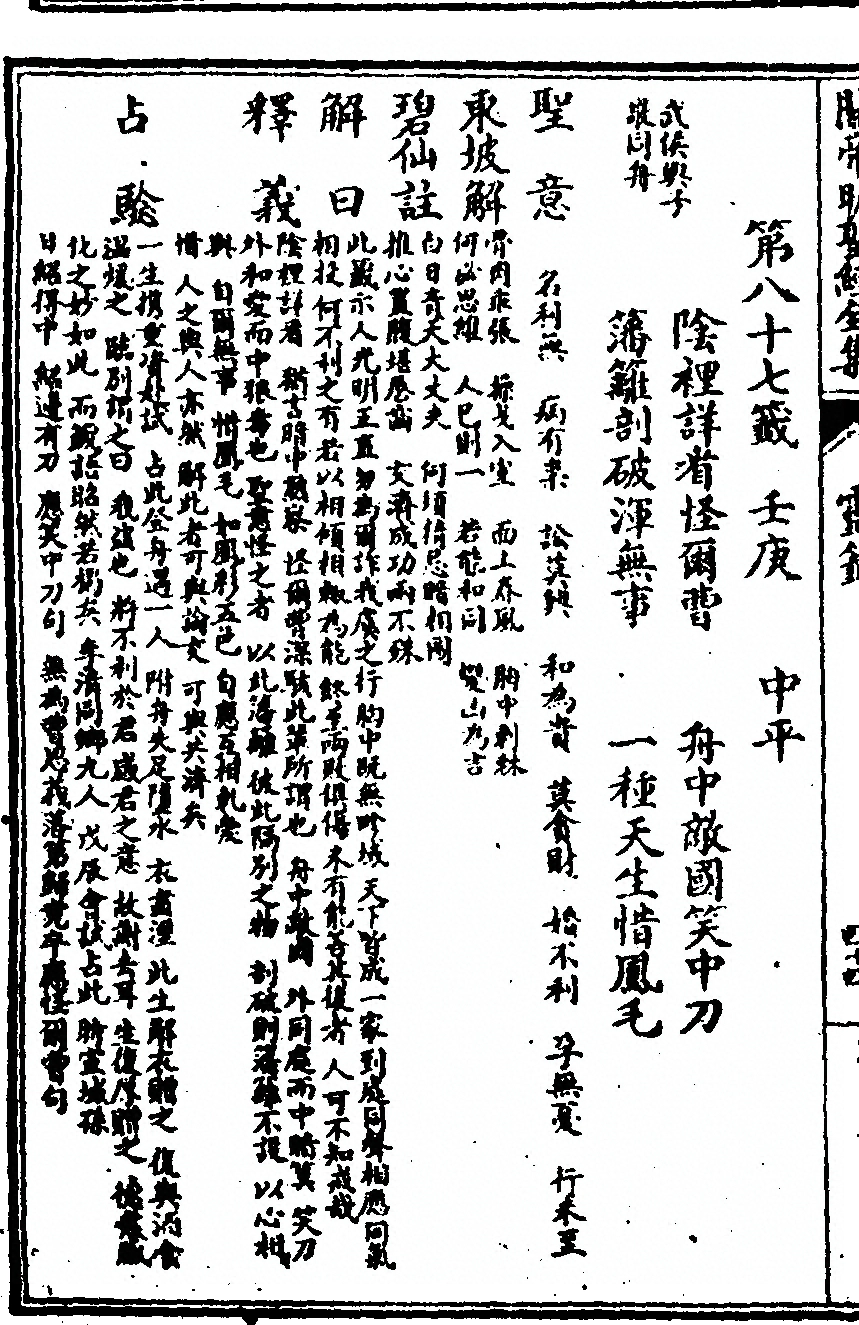 關帝明聖經全集
靈籤
第八十七籤　壬庚　中平
武侯與子
陰裡詳看怪爾曹　舟中敵國笑中刀
藩籬剖破渾無事　一種天生惜鳳毛
聖意　名利無　病有祟　訟莫興　和為貴　莫貪財　婚不利　孕無憂　行未至
東坡解　骨肉乖張　操戈入室　面上春風　胸中荊棘
何必思維　人己則一　若能和同　變凶為吉
碧仙註　白日青天大丈夫　何須猜忌暗相圖
推心置腹堪歷齒　交濟成功兩不殊
解曰　此籤示人光明正直　勿為爾詐我虞之行　胸中既無畛域　天下皆成一家　到處同聲相應同氣
相投　何不利之有　若以相傾相軋為能　終至兩敗俱傷　未有能善其後者　人可不知戒哉
釋義　陰裡詳看　猶言暗中觀察　怪爾曹深駭此輩所謂也　舟中敵國　外同處而中暗異　笑刀
外和愛而中狠毒也　聖意怪之者　以此藩籬　彼此隔別之物　剖破則藩籬不設　以心相
與　自爾無事　惜鳳毛　如鳳彩五色　自應互相乳愛
惜　人之與人亦然　解此者可與論交　可與共濟矣
占驗　一生攜重資赴試　占此登舟遇一人　附舟失足墮水　衣盡溼　此生解衣贈之　復與酒食
溫煖之　臨別謂之曰　我盜也　將不利於君　感君之意　故謝去耳　生復厚贈之
化之妙如此　而籤語昭然若揭矣　戊辰會試占此
日　應笑中刀句　落第歸　應怪爾曹句